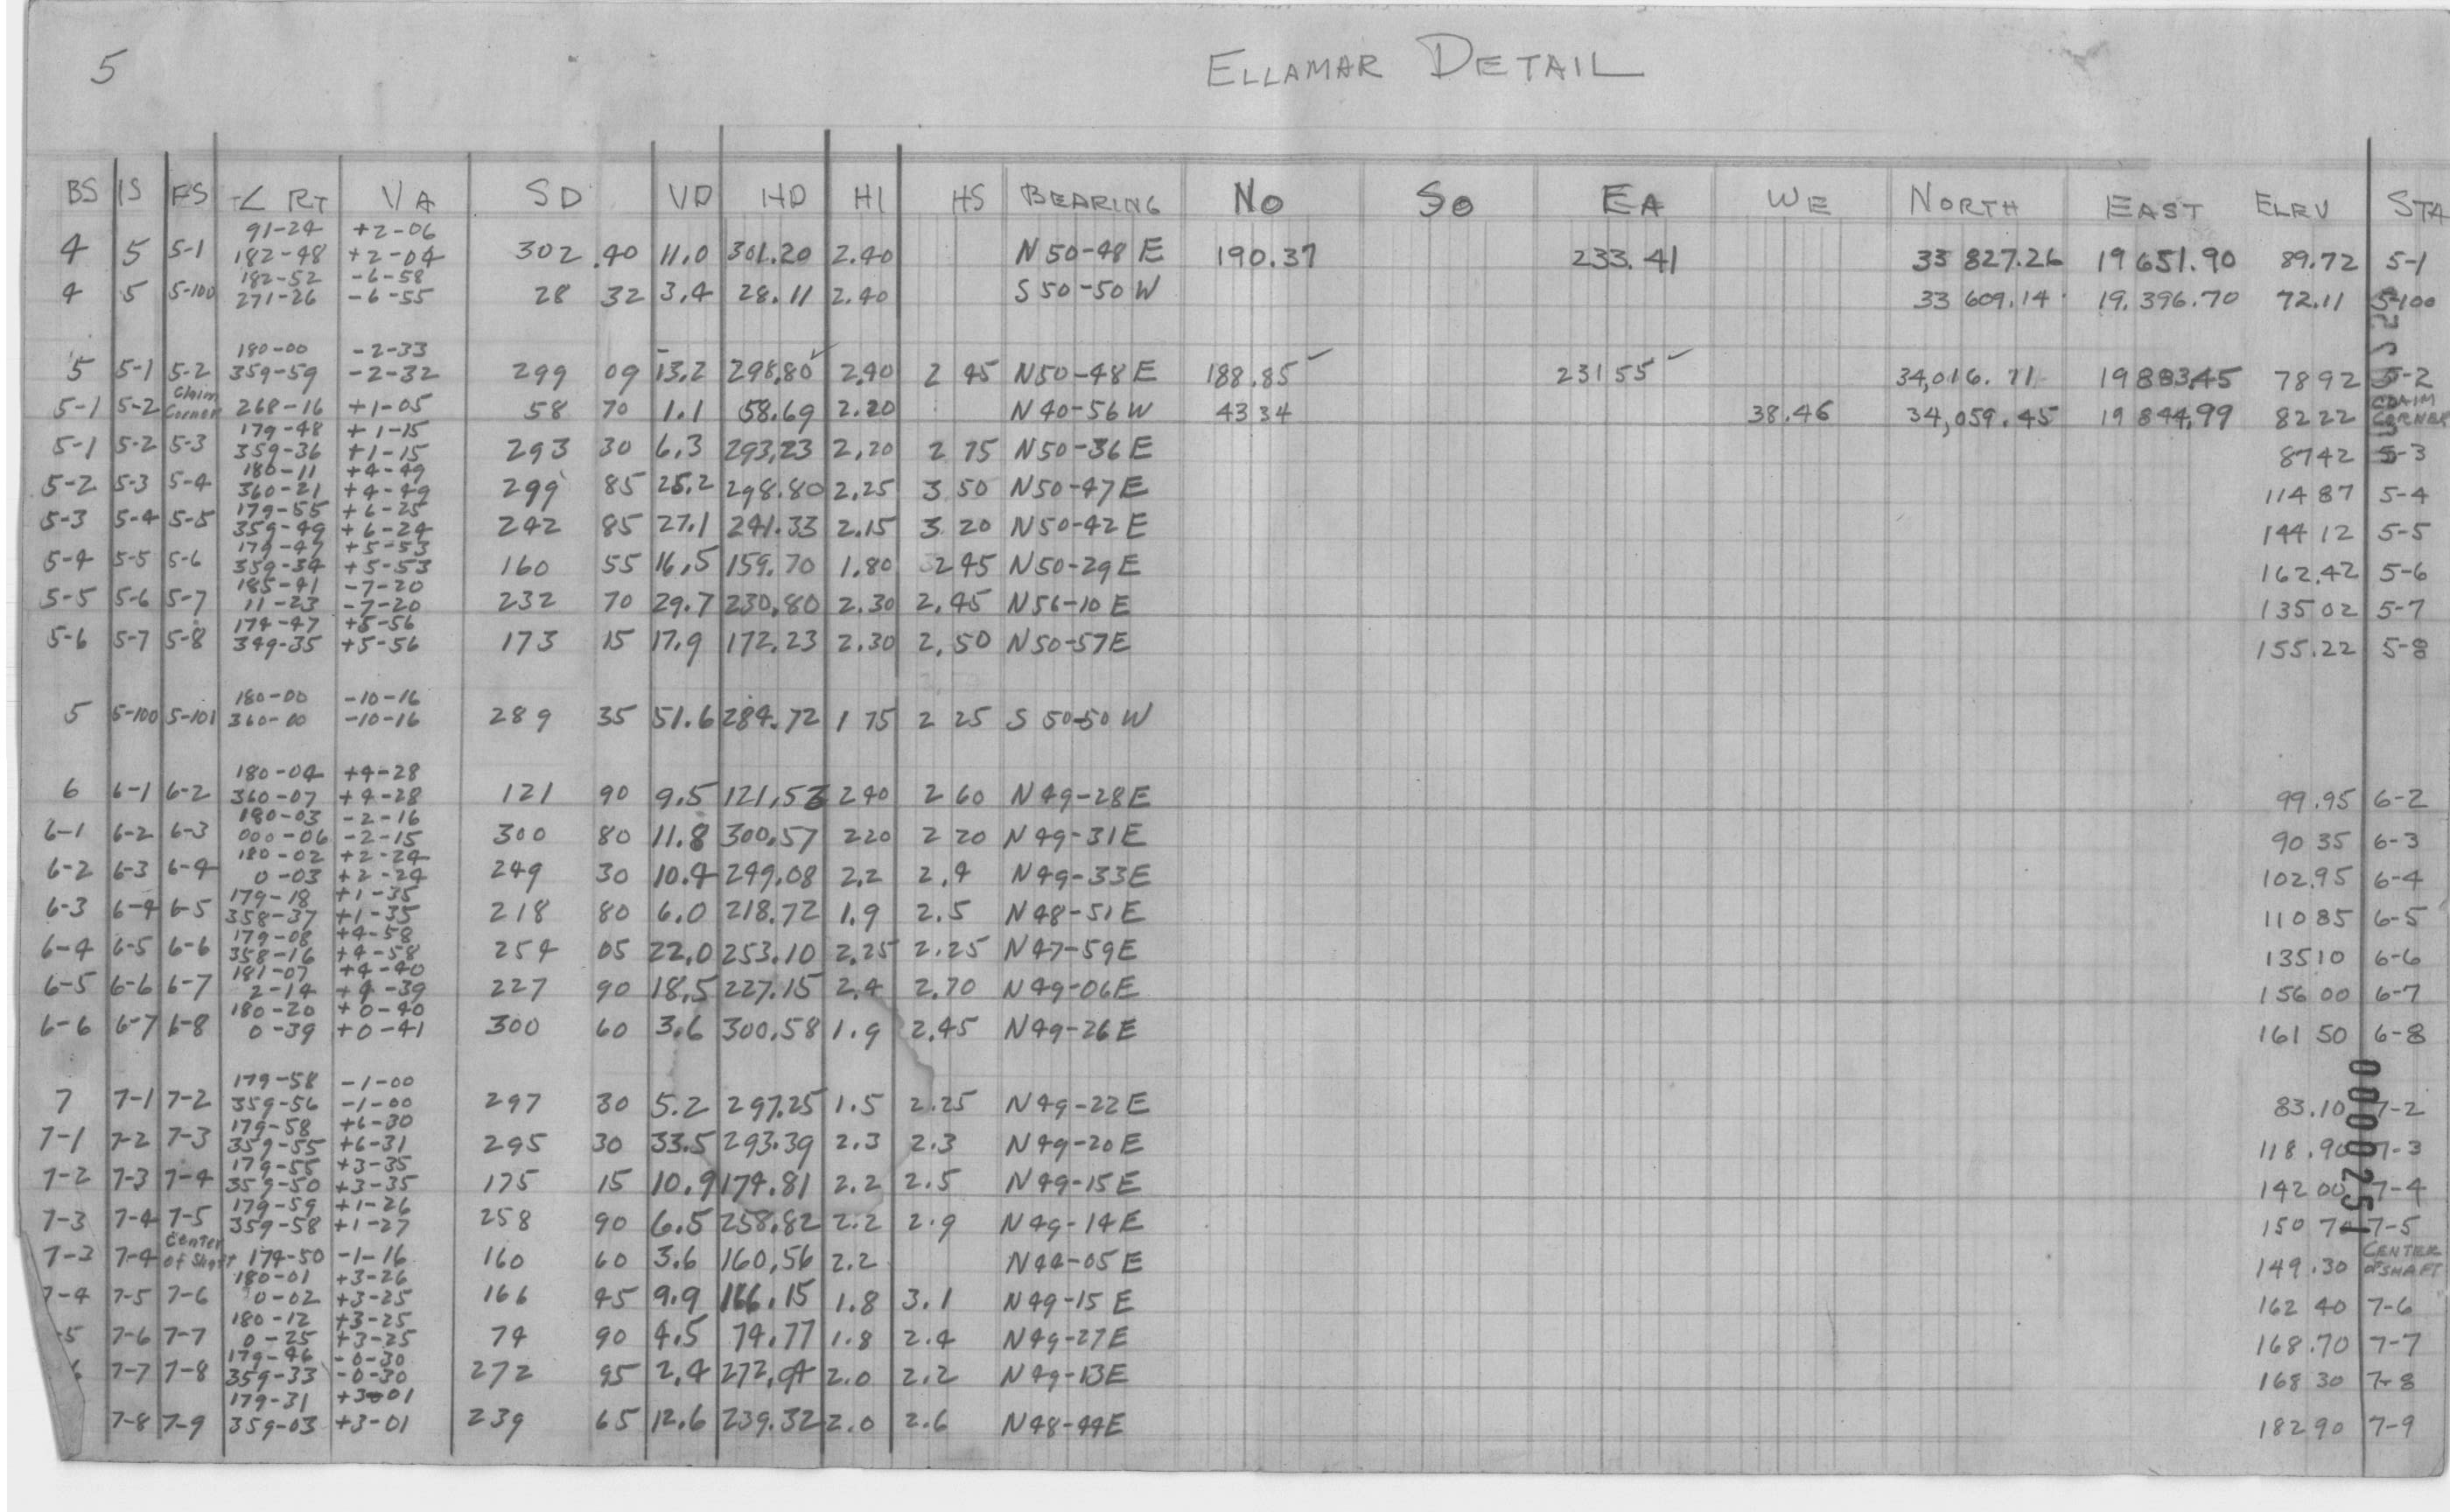 5
ELLAMAR DETAIL
BS IS FS ∠ RT VA SD VD HD HI HS BEARING NO SO EA WE NORTH EAST ELEV STA
91-24 +2-06
4 5 5-1 182-48 +2-04 302 .40 11.0 301.20 2.40 N 50-48 E 190.37 233.41 33 827.26 19 651.90 89.72 5-1
182-52 -6-58
4 5 5-100 271-26 -6-55 28 32 3.4 28.11 2.40 S 50-50 W 33 609.14 19,396.70 72.11 5-100
180-00 -2-33
5 5-1 5-2 359-59 -2-32 299 09 13.2 298.80 2.40 2 45 N50-48 E 188.85 231 55 34,016.71 19 883.45 78 92 5-2
5-1 5-2 Claim Corner 268-16 +1-05 58 70 1.1 58.69 2.20 N 40-56 W 43 34 38.46 34,059.45 19 844.99 82 22 CLAIM CORNER
179-48 +1-15
5-1 5-2 5-3 359-36 +1-15 293 30 6.3 293.23 2.20 2 75 N50-36 E 87 42 5-3
180-11 +4-49
5-2 5-3 5-4 360-21 +4-49 299 85 25.2 298.80 2.25 3 50 N50-47 E 114 87 5-4
179-55 +6-25
5-3 5-4 5-5 359-49 +6-24 242 85 27.1 241.33 2.15 3 20 N50-42 E 144 12 5-5
179-47 +5-53
5-4 5-5 5-6 359-34 +5-53 160 55 16.5 159.70 1.80 2 45 N50-29 E 162.42 5-6
185-41 -7-20
5-5 5-6 5-7 11-23 -7-20 232 70 29.7 230.80 2.30 2.45 N56-10 E 135 02 5-7
174-47 +5-56
5-6 5-7 5-8 349-35 +5-56 173 15 17.9 172.23 2.30 2.50 N50-57E 155.22 5-8
180-00 -10-16
5 5-100 5-101 360-00 -10-16 289 35 51.6 284.72 1 75 2 25 S 50-50 W
180-04 +4-28
6 6-1 6-2 360-07 +4-28 121 90 9.5 121.53 2 40 2 60 N 49-28 E 99.95 6-2
180-03 -2-16
6-1 6-2 6-3 000-06 -2-15 300 80 11.8 300.57 220 2 20 N 49-31 E 90 35 6-3
180-02 +2-24
6-2 6-3 6-4 0-03 +2-24 249 30 10.4 249.08 2.2 2.4 N49-33E 102.95 6-4
179-18 +1-35
6-3 6-4 6-5 358-37 +1-35 218 80 6.0 218.72 1.9 2.5 N48-51E 110 85 6-5
179-08 +4-58
6-4 6-5 6-6 358-16 +4-58 254 05 22.0 253.10 2.25 2.25 N47-59E 135 10 6-6
181-07 +4-40
6-5 6-6 6-7 2-14 +4-39 227 90 18.5 227.15 2.4 2.70 N49-06E 156 00 6-7
180-20 +0-40
6-6 6-7 6-8 0-39 +0-41 300 60 3.6 300.58 1.9 2.45 N49-26 E 161 50 6-8
179-58 -1-00
7 7-1 7-2 359-56 -1-00 297 30 5.2 297.25 1.5 2.25 N49-22 E 83.10 7-2
179-58 +6-30
7-1 7-2 7-3 359-55 +6-31 295 30 33.5 293.39 2.3 2.3 N49-20 E 118.90 7-3
179-55 +3-35
7-2 7-3 7-4 359-50 +3-35 175 15 10.9 174.81 2.2 2.5 N49-15 E 142 00 7-4
179-59 +1-26
7-3 7-4 7-5 359-58 +1-27 258 90 6.5 258.82 2.2 2.9 N49-14E 150 70 7-5
7-3 7-4 Center of Shaft 174-50 -1-16 160 60 3.6 160.56 2.2 N44-05 E 149.30 CENTER OF SHAFT
180-01 +3-26
7-4 7-5 7-6 0-02 +3-25 166 45 9.9 166.15 1.8 3.1 N49-15 E 162 40 7-6
180-12 +3-25
-5 7-6 7-7 0-25 +3-25 74 90 4.5 74.77 1.8 2.4 N49-27E 168.70 7-7
179-46 -0-30
6 7-7 7-8 359-33 -0-30 272 95 2.4 272.94 2.0 2.2 N49-13E 168 30 7-8
179-31 +3-01
7-8 7-9 359-03 +3-01 239 65 12.6 239.32 2.0 2.6 N48-44E 182 90 7-9
0000251